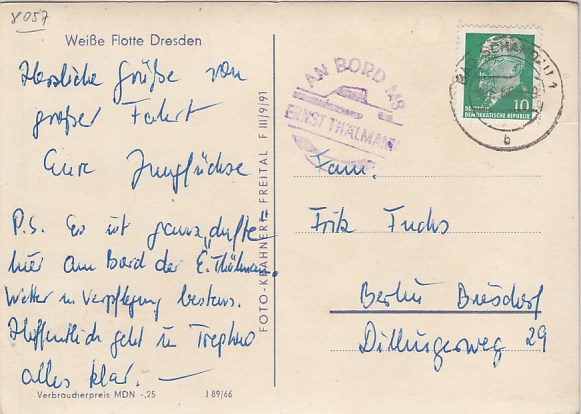 8057
Weiße Flotte Dresden
Herzliche Grüße von
großer Fahrt
Eure Jungfüchse
P.S. Es ist ganz „dufte“
hier am Bord der E. Thälmann.
Wetter u Verpflegung bestens.
Hoffentlich geht in Treptow
alles klar. —
Verbraucherpreis MDN -,25
J 89/66
FOTO-KRAHNERT FREITAL F III/9/91
AN BORD MS
ERNST THÄLMANN
BAD SCHANDAU 1
b
10
DEUTSCHE
DEMOKRATISCHE REPUBLIK
Fam.
Fritz Fuchs
Berlin Biesdorf
Dillingerweg 29